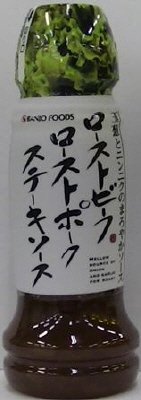 BANJO FOODS
玉葱とニンニクのまろやかソース
ローストビーフ
ローストポーク
ステーキソース
MELLOW
SOURCE OF
ONION
AND GARLIC
FOR ROAST